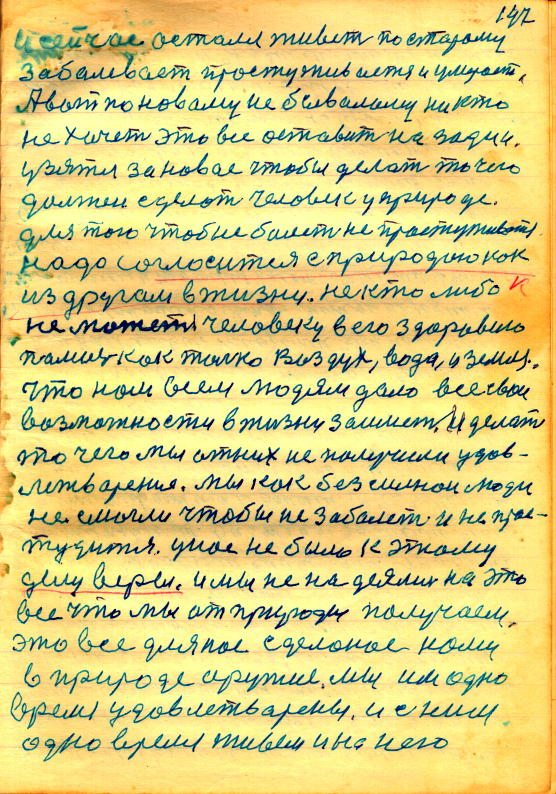 147
И сейчас остался живет по старому
Забалевает простуживается и умрает.
А вот по новаму не бывалому никто
не хочет это все оставит на зади и.
узятся за новае чтобы делат то чего
должен сделат человек у природе.
для того чтобы не болеть не простуживатся
надо согласится с природою как
из другам в жизни. не кто либо к
не может человеку в его здоровию
памич как толко воздух, вода, и земля.
что нам всем людям дало все свои
возможности в жизни заимет. И делат
то чего мы от них не получили удов-
летварения. мы как безсилнои люди
не смогли чтобы не забалет и не прос-
тудится. у нас не было к эткому
делу веры. и мы не надеялис на это
все что мы от природы получаем.
это все для нас сделоное нами
в природе оружие. мы им одно
время удовлетварены. и с ним
одно время живем и на него